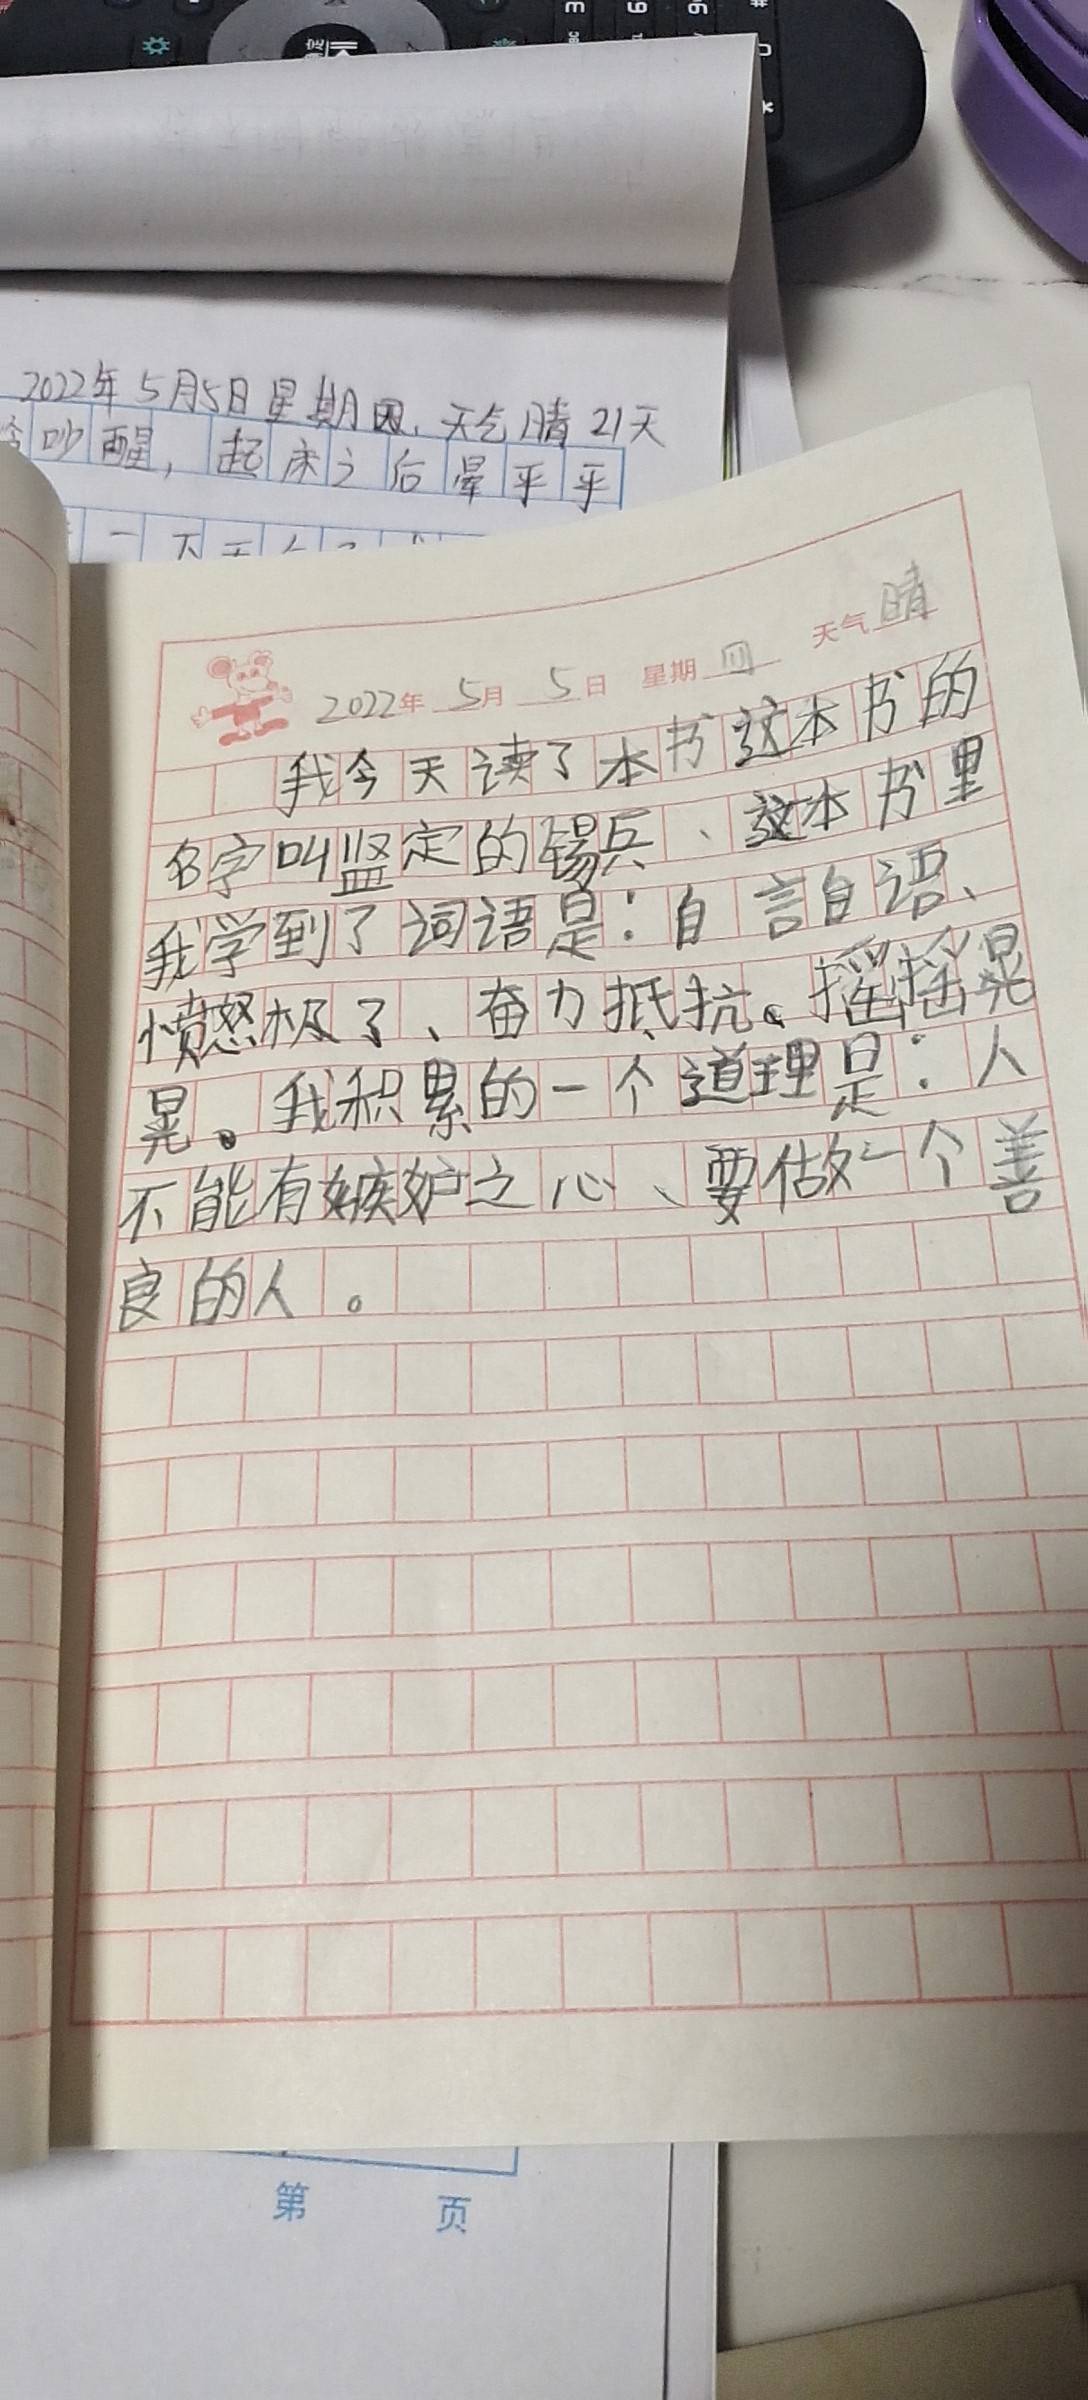 2022年5月5日星期四,天气晴21天
吵醒,起床之后晕乎乎
2022年5月5日 星期四 天气晴
我今天读了本书这本书的
名字叫坚定的锡兵、这本书里
我学到了词语是:自言自语、
愤怒极了、奋力抵抗。摇摇晃
晃。我积累的一个道理是:人
不能有嫉妒之心、要做一个善
良的人。
第 页